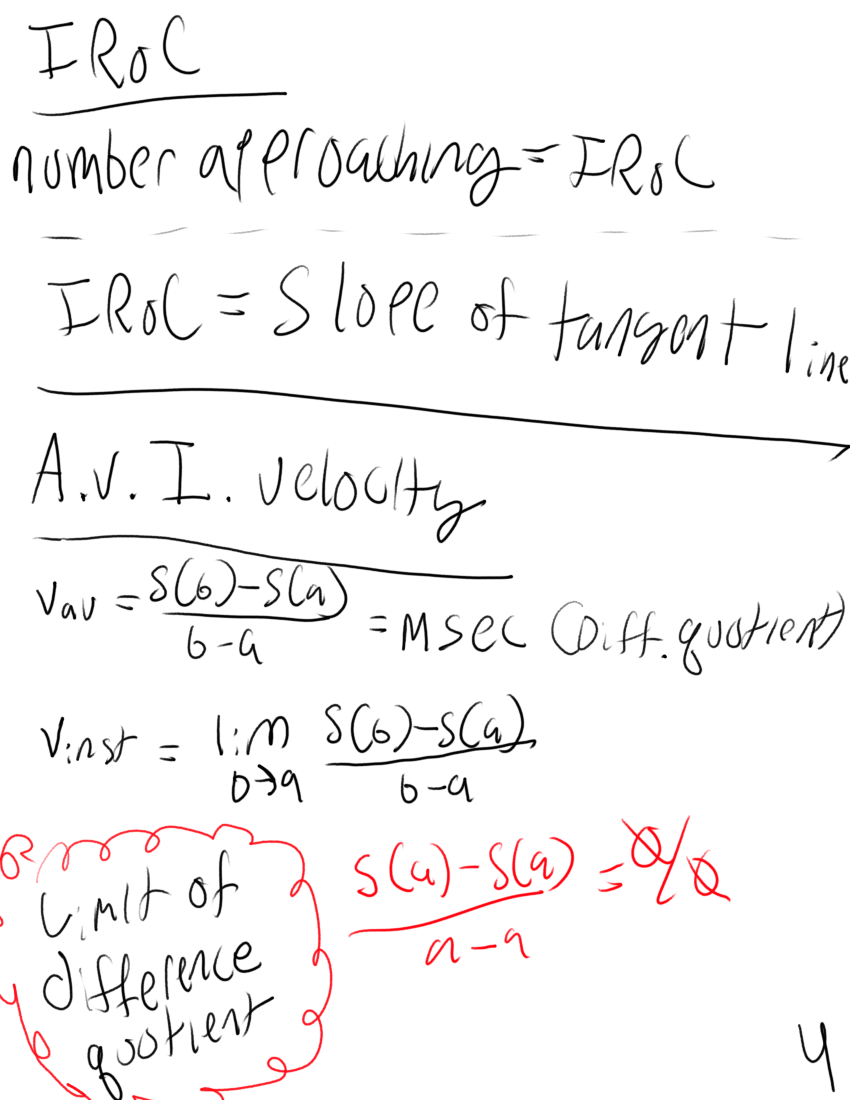 IRoC
number approaching = IRoC
IRoC = Slope of tangent line
A.V. I. velocity
Vav = S(b)-S(a) / b-a = Msec (Diff. quotient)
Vinst = lim b→a S(b)-S(a) / b-a
Limit of
difference
quotient
S(a)-S(a) / a-a = 0/0
4